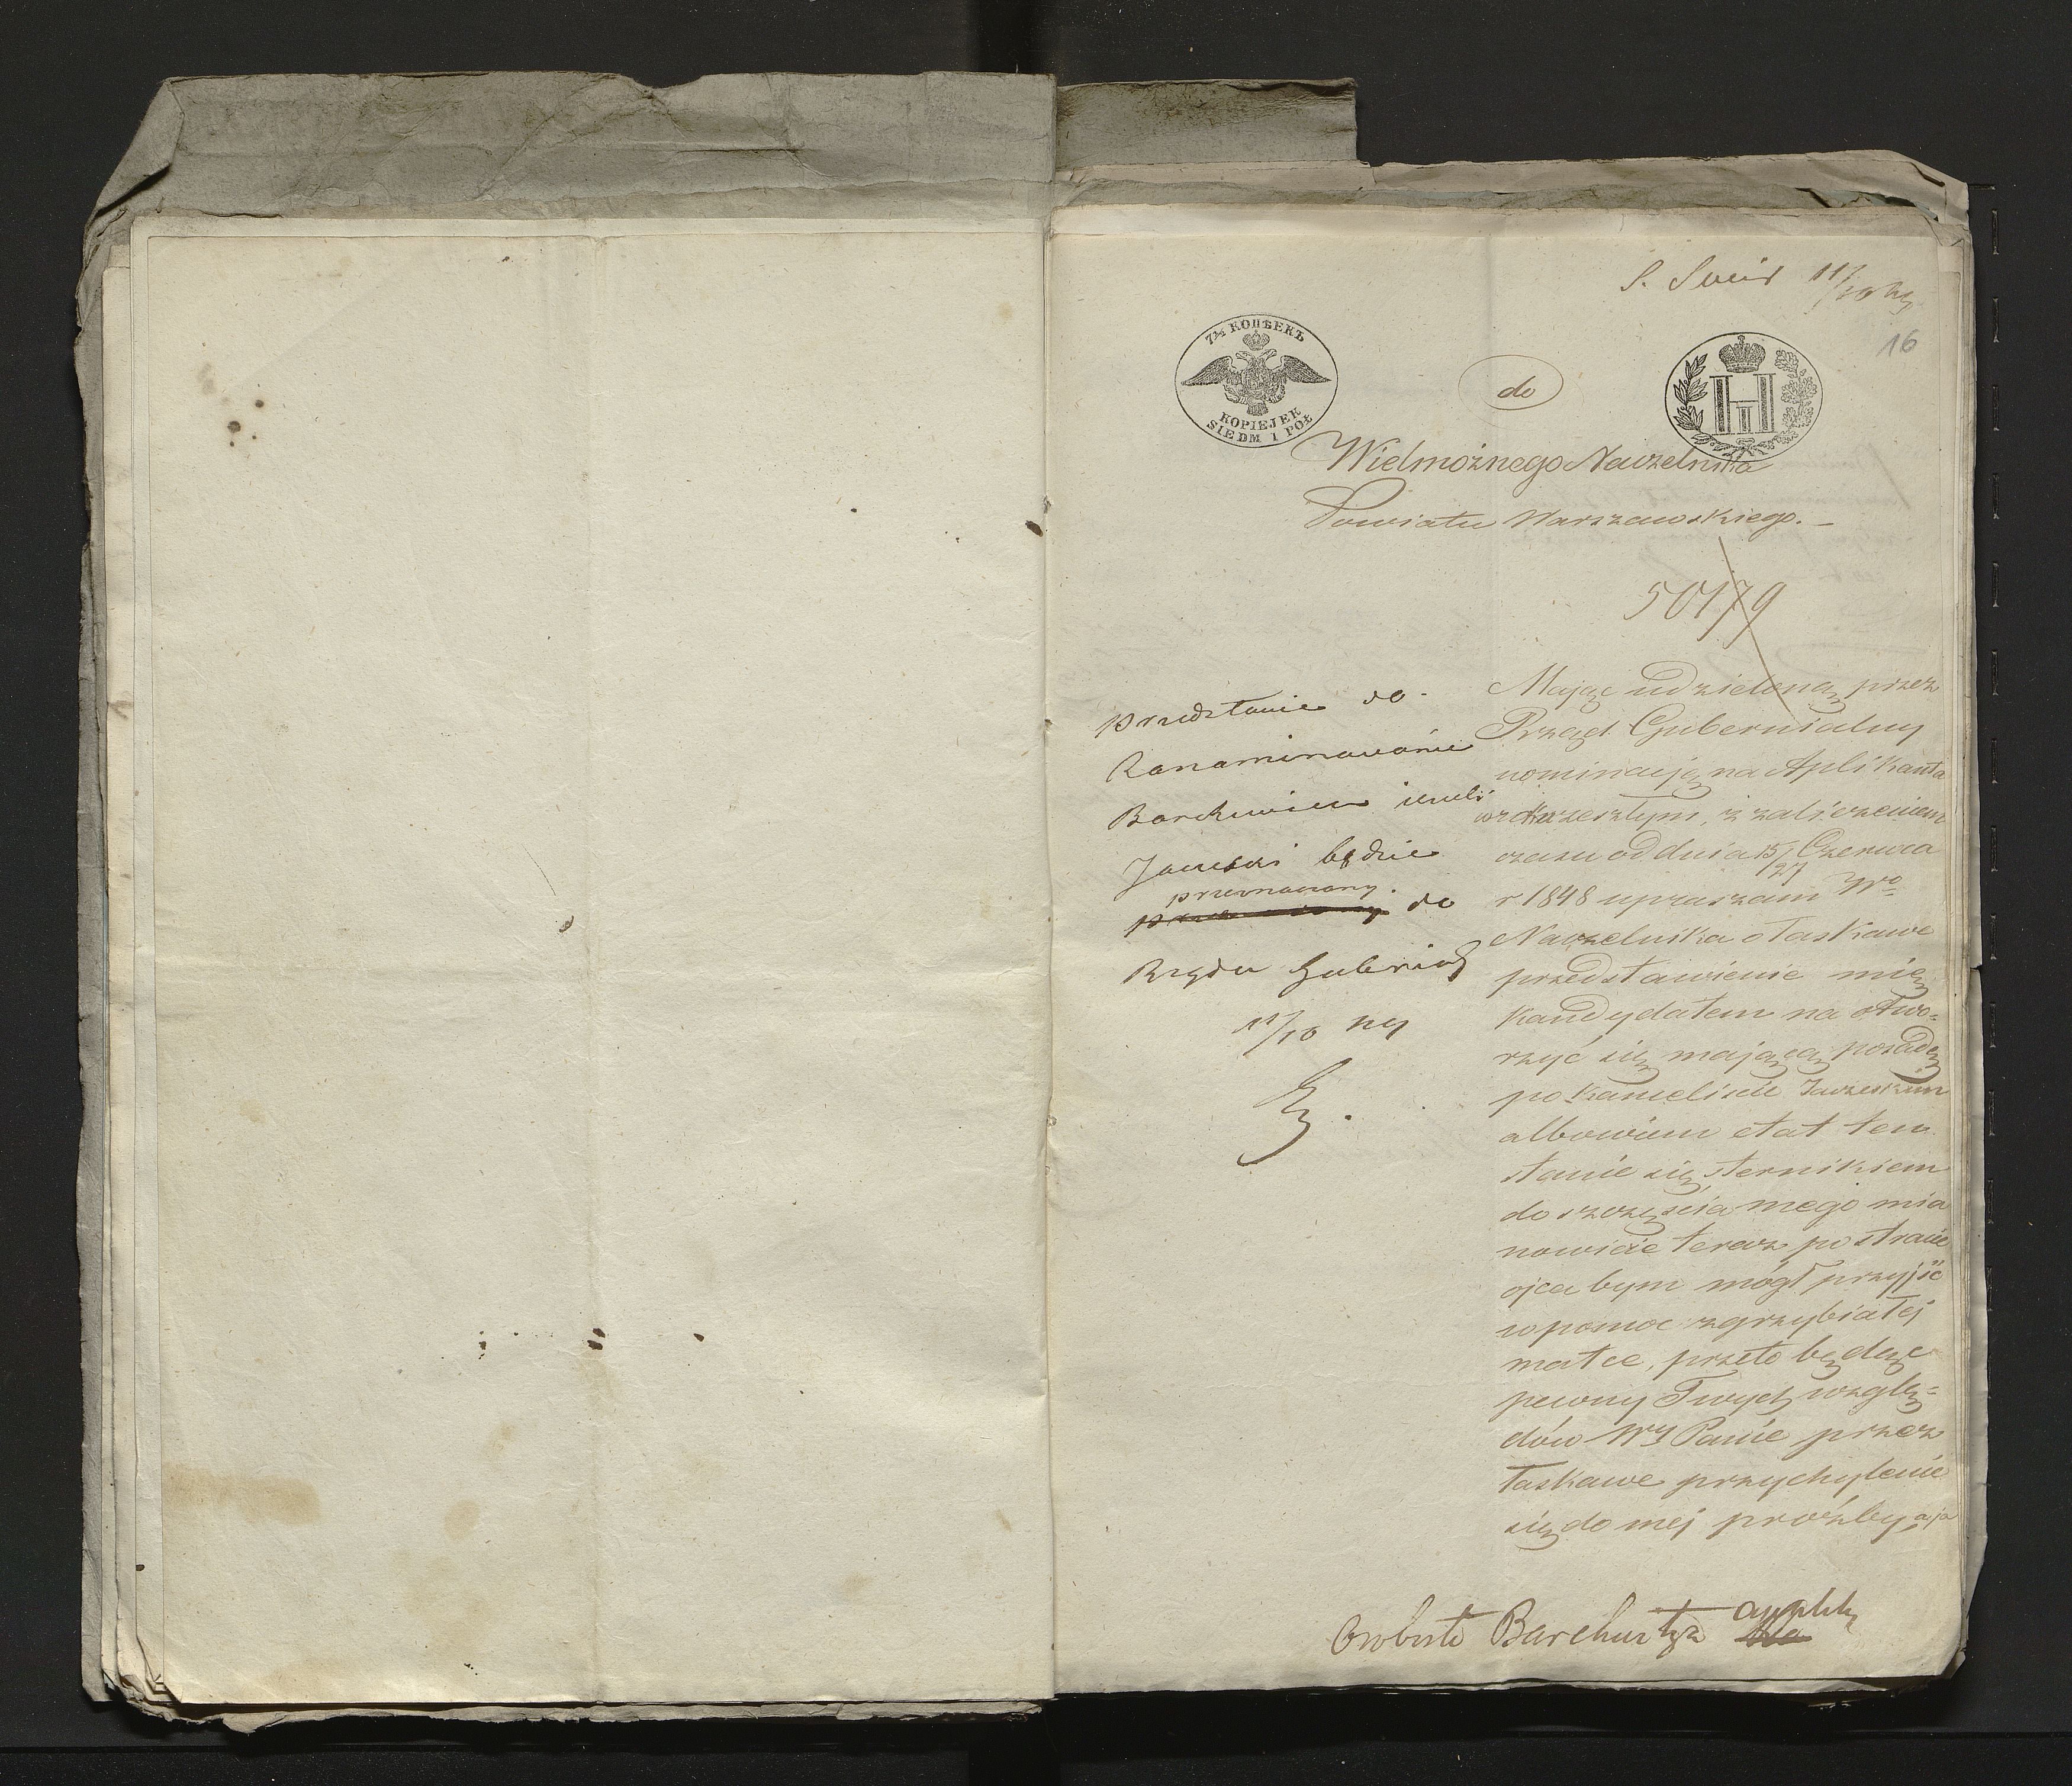 S. Swid 11/10
16
7½ КОПѢЕКЪ
KOPIEJEK
SIEDM I PÓŁ
do
Wielmożnego Naczelnika
Powiatu Warszawskiego. –
50179
Przedstawić do
Zanominowania
jeżeli
będzie
przeznaczony
do
Rządu Gubernial
11/10
Mając udzieloną przez
Rząd Gubernialny
nominacją na Aplikanta
z zaliczeniem
czasu od dnia 15/27 Czerwca
r 1848 upraszam Wo
Naczelnika o łaskawe
przedstawienie mię
kandydatem na otwo=
rzyć się mającą posadę
po Kanceliście Jaczeskim
albowiem etat ten
stanie się sternikiem
do szczęścia mego mia
nowicie teraz po stracie
ojca bym mógł przyjść
w pomoc zgrzybiałej
matce, przeto będąc
pewny Twych wzglę=
dów Wy Panie przez
łaskawe przychylenie
się do mej próźby, a ja
Osobiste